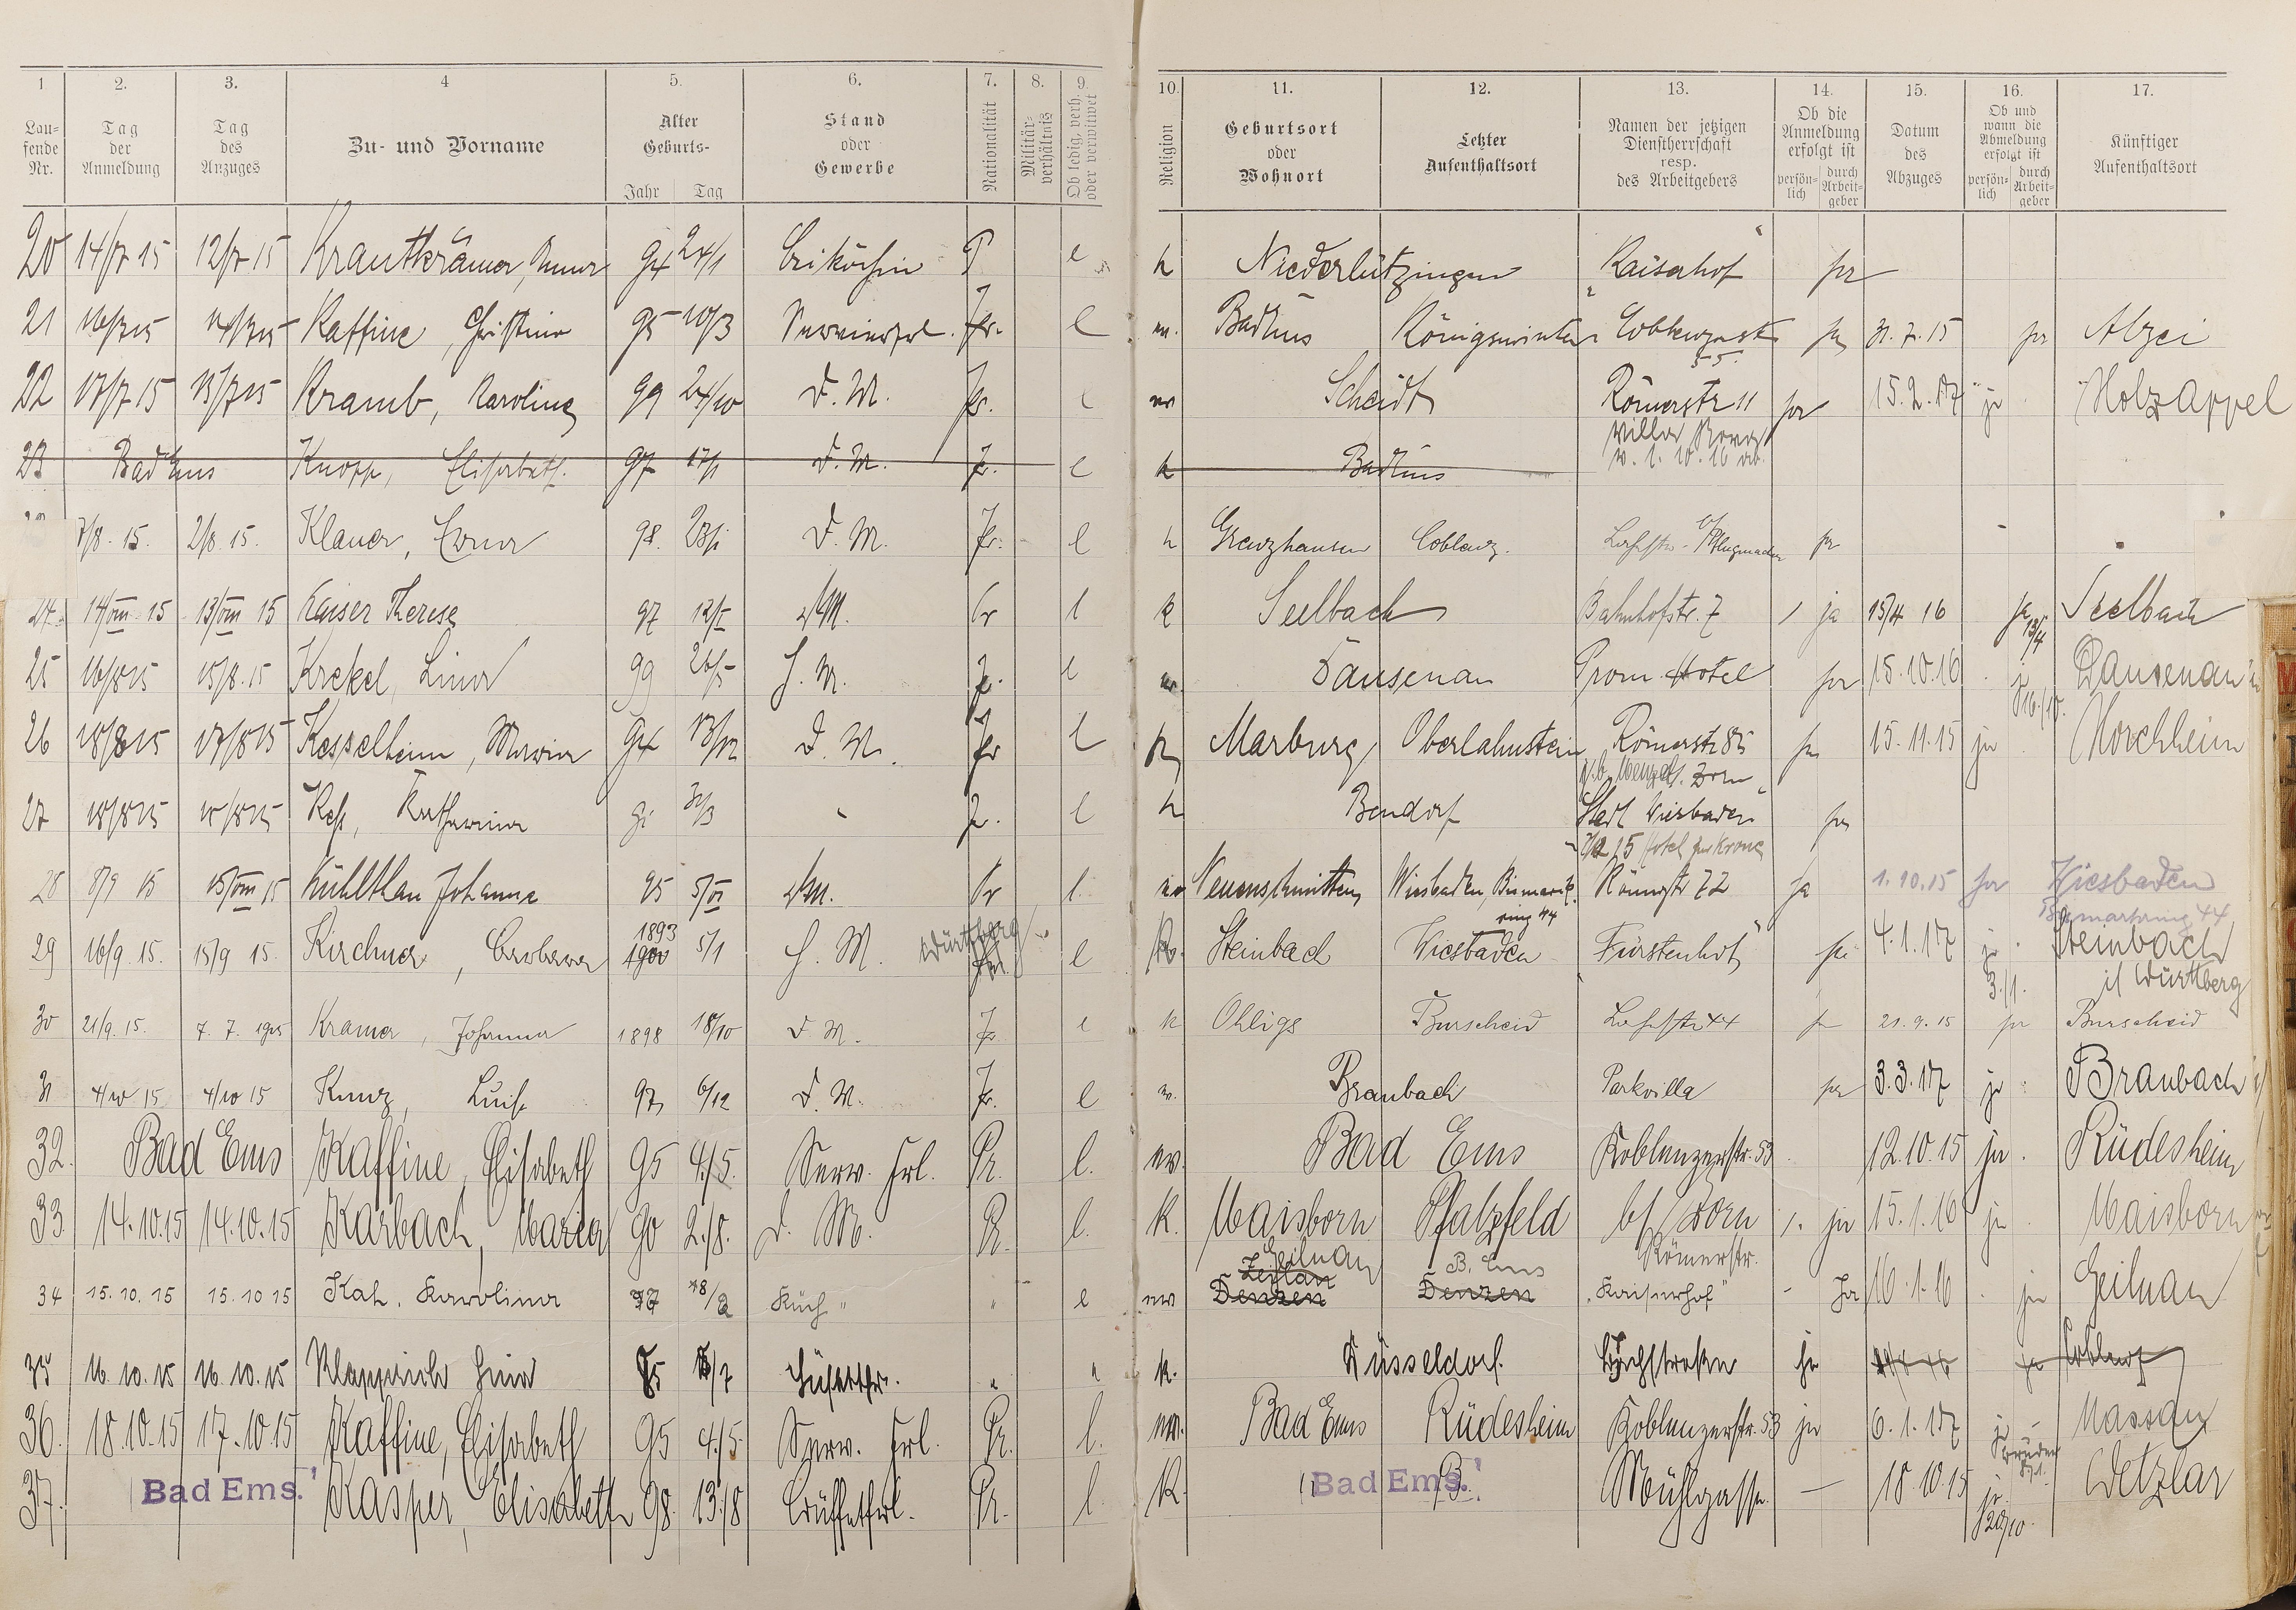 1 2. 3. 4 5. 6. 7. 8. 9. 10. 11. 12. 13. 14. 15. 16. 17.
Laufende Nr. Tag der Anmeldung Tag des Anzuges Zu- und Vorname Alter Geburts- Jahr Tag Stand oder Gewerbe Nationalität Militärverhältnis Ob ledig, verh. oder verwitwet Religion Geburtsort oder Wohnort Letzter Aufenthaltsort Namen der jetzigen Dienstherrschaft resp. des Arbeitgebers Ob die Anmeldung erfolgt ist persönlich durch Arbeitgeber Datum des Abzuges Ob und wann die Abmeldung erfolgt ist persönlich durch Arbeitgeber Künftiger Aufenthaltsort
20 14/7 15 12/7 15 Krautkrämer, Anna 94 24/1 Beiköchin P l k Niederlützingen "Kaiserhof" ja
21 16/7 15 14/7 15 Kaffine, Christine 95 10/3 Servierfrl. Pr. l ev. Bad Ems Königswinter Coblenzerstr 55. ja 31.7.15 ja Alzei
22 17/7 15 15/7 15 Kramb, Karoline 99 24/10 D. M. Pr. l ev Scheidt Römerstr 11 ja 15.2.17 ja Holzappel
23 Bad Ems Knopp, Elisabeth. 97 17/1 D. M. Pr. l k Bad Ems Villa
7/8. 15. 2/8. 15. Klauer, Erna 98. 23/1 D. M. Pr. l k Grenzhausen Coblenz. Lahnstr. Pflugmacher ja
24. 14/VIII 15 13/VIII 15 Kaiser Therese 97 12/I DM. Pr l k Seelbach Bahnhofstr. 7 / ja 15/4 16 ja 13/4 Seelbach
25 16/8 15 15/8. 15 Krekel, Lina 99 26/5 H. M. Pr. l ev. Dausenau Prom. Hotel ja 15.10.16 j 16./10. Dausenau
26 18/8 15 17/8 15 Kesselheim, Maria 94 13/12 D. M. Pr l k Marburg Oberlahnstein Römerstr 85 ja 15.11.15 ja Horchheim
N.b. Wenzels. Zorn
27 18/8 15 15/8 15 Keß, Katharina 91 31/3 " Pr. l k Bendorf "Stadt Wiesbaden" ja
Hotel zur Krone
28 8/9 15 15/VIII 15 Kühlthau Johanna 95 5/VI DM. Pr l. ev Neuenschmitten Wiesbaden, Bismarckring 44 Römerstr 72 ja 1.10.15 ja Wiesbaden Bismarkring 44
29 16/9 15. 15/9 15. Kirchner, Barbara 1893 1900 5/1 H. M. Württberg Pr. l k. Steinbach Wiesbaden "Fürstenhof" ja 4.1.17 j. 3./1. Steinbach i/ Württberg
30 21/9. 15. 7. 7. 1915 Kramer, Johanna 1898 18/10 D M. Pr l k Ohligs Burscheid Lahnstr 44 ja 21.9.15 ja Burscheid
31 4/10 15 4/10 15 Kunz, Luise 97 6/12 D. M. Pr. l ev. Braubach Parkvilla ja 3.3.17 ja Braubach
32. Bad Ems Kaffine, Elisabeth 95 4./5. Serv. Frl. Pr. l. ev. Bad Ems Koblenzerstr. 53 12.10.15 ja. Rüdesheim
33 14.10.15 14.10.15 Karbach, Maria 90 2./8. D. M. Pr. l. k. Maisborn Pfalzfeld bf/ Zorn Römerstr. /. ja 15.1.16 ja Maisborn
34 15.10.15 15.10 15 Kah. Karolina Küch " " l ev Geilnau Denzen B. Ems Denzen "Kaiserhof" - Ja 16.1.16 ja Geilnau
35 16.10.15 16.10.15 " " k. Düsseldorf. ja ja Coblenz
36. 18.10.15 17.10.15 Kaffine, Elisabeth 95 4./5 Serv. Frl. Pr. l. ev. Bad Ems Rüdesheim Koblenzerstr. 53 ja 6.1.17 Nassau
37. Bad Ems. Kasper, Elisabeth 98. 13./8 Büffetfrl. Pr. l. K. Bad Ems. Mühlgasse. — 18.10.15 ja 20/10. Wetzlar